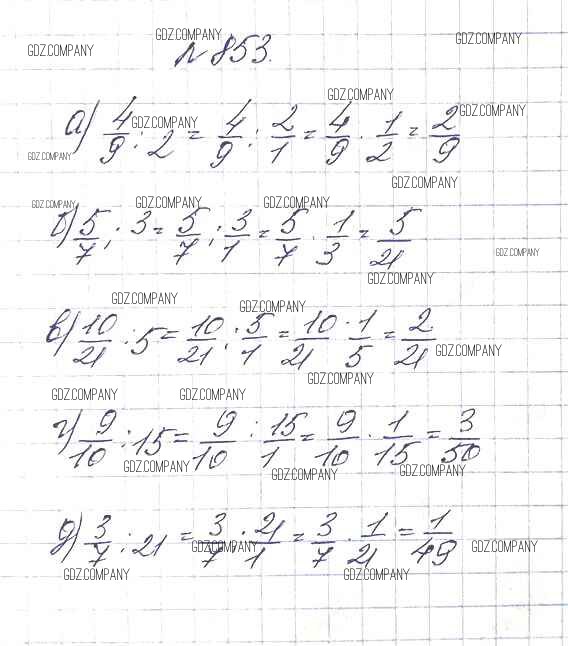 № 853.
GDZ.COMPANY GDZ.COMPANY GDZ.COMPANY
GDZ.COMPANY GDZ.COMPANY
а) 4/9 : 2 = 4/9 : 2/1 = 4/9 · 1/2 = 2/9
GDZ.COMPANY GDZ.COMPANY
GDZ.COMPANY
GDZ.COMPANY GDZ.COMPANY GDZ.COMPANY
б) 5/7 : 3 = 5/7 : 3/1 = 5/7 · 1/3 = 5/21
GDZ.COMPANY
GDZ.COMPANY
GDZ.COMPANY GDZ.COMPANY
в) 10/21 : 5 = 10/21 : 5/1 = 10/21 · 1/5 = 2/21
GDZ.COMPANY
GDZ.COMPANY
GDZ.COMPANY GDZ.COMPANY
г) 9/10 : 15 = 9/10 : 15/1 = 9/10 · 1/15 = 3/50
GDZ.COMPANY GDZ.COMPANY GDZ.COMPANY
д) 3/7 : 21 = 3/7 : 21/1 = 3/7 · 1/21 = 1/49
GDZ.COMPANY GDZ.COMPANY
GDZ.COMPANY GDZ.COMPANY